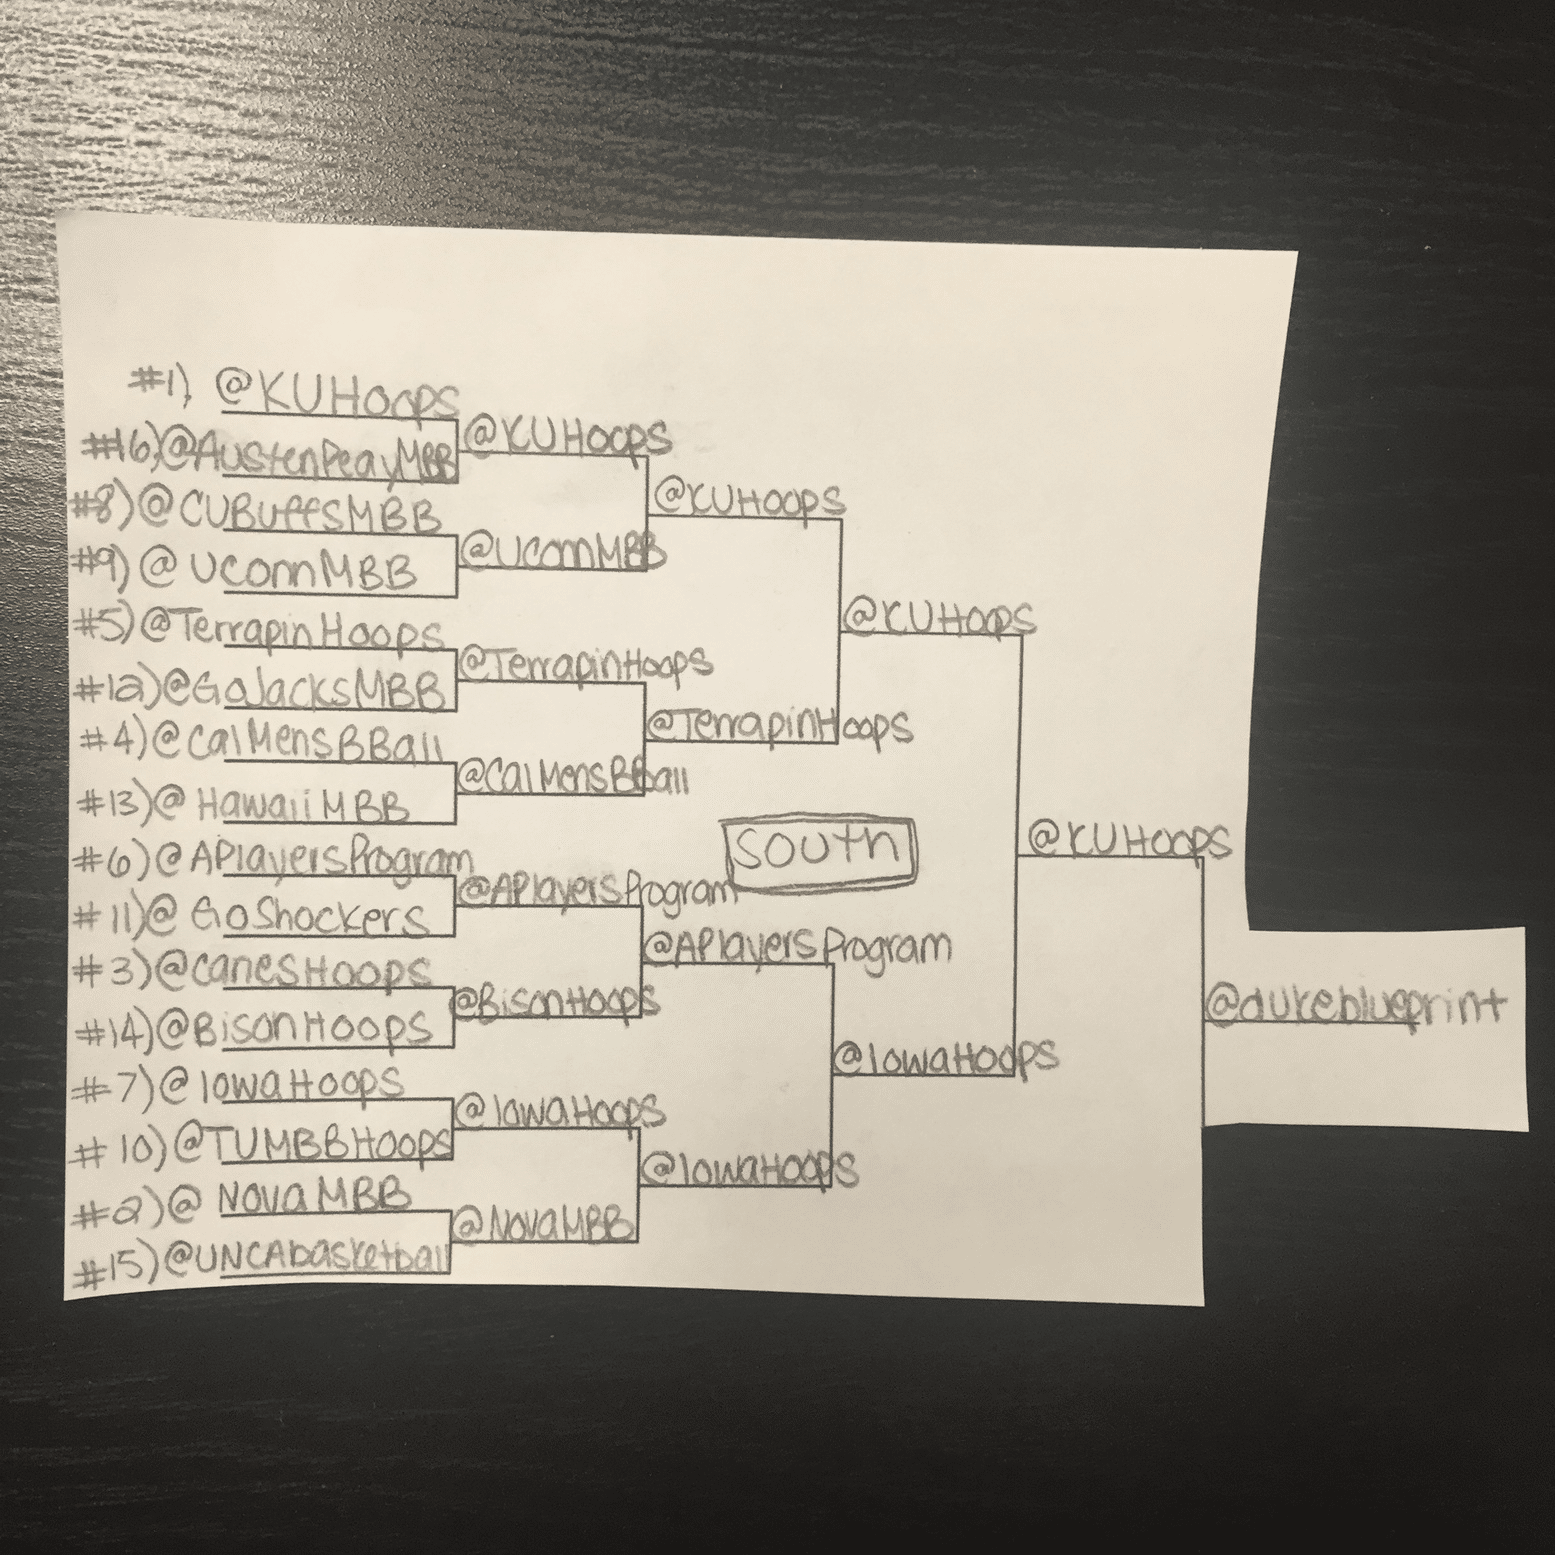 #1) @KUHoops
#16) @AustenPeayMBB
#8) @CUBuffsMBB
#9) @UConnMBB
#5) @TerrapinHoops
#12) @GoJacksMBB
#4) @CalMensBBall
#13) @HawaiiMBB
#6) @APlayersProgram
#11) @GoShockers
#3) @CanesHoops
#14) @BisonHoops
#7) @IowaHoops
#10) @TUMBBHoops
#2) @NovaMBB
#15) @UNCAbasketball
@KUHoops
@UConnMBB
@TerrapinHoops
@CalMensBBall
@APlayersProgram
@BisonHoops
@IowaHoops
@NovaMBB
@KUHoops
@TerrapinHoops
@APlayersProgram
@IowaHoops
SOUTH
@KUHoops
@IowaHoops
@KUHoops
@dukeblueprint